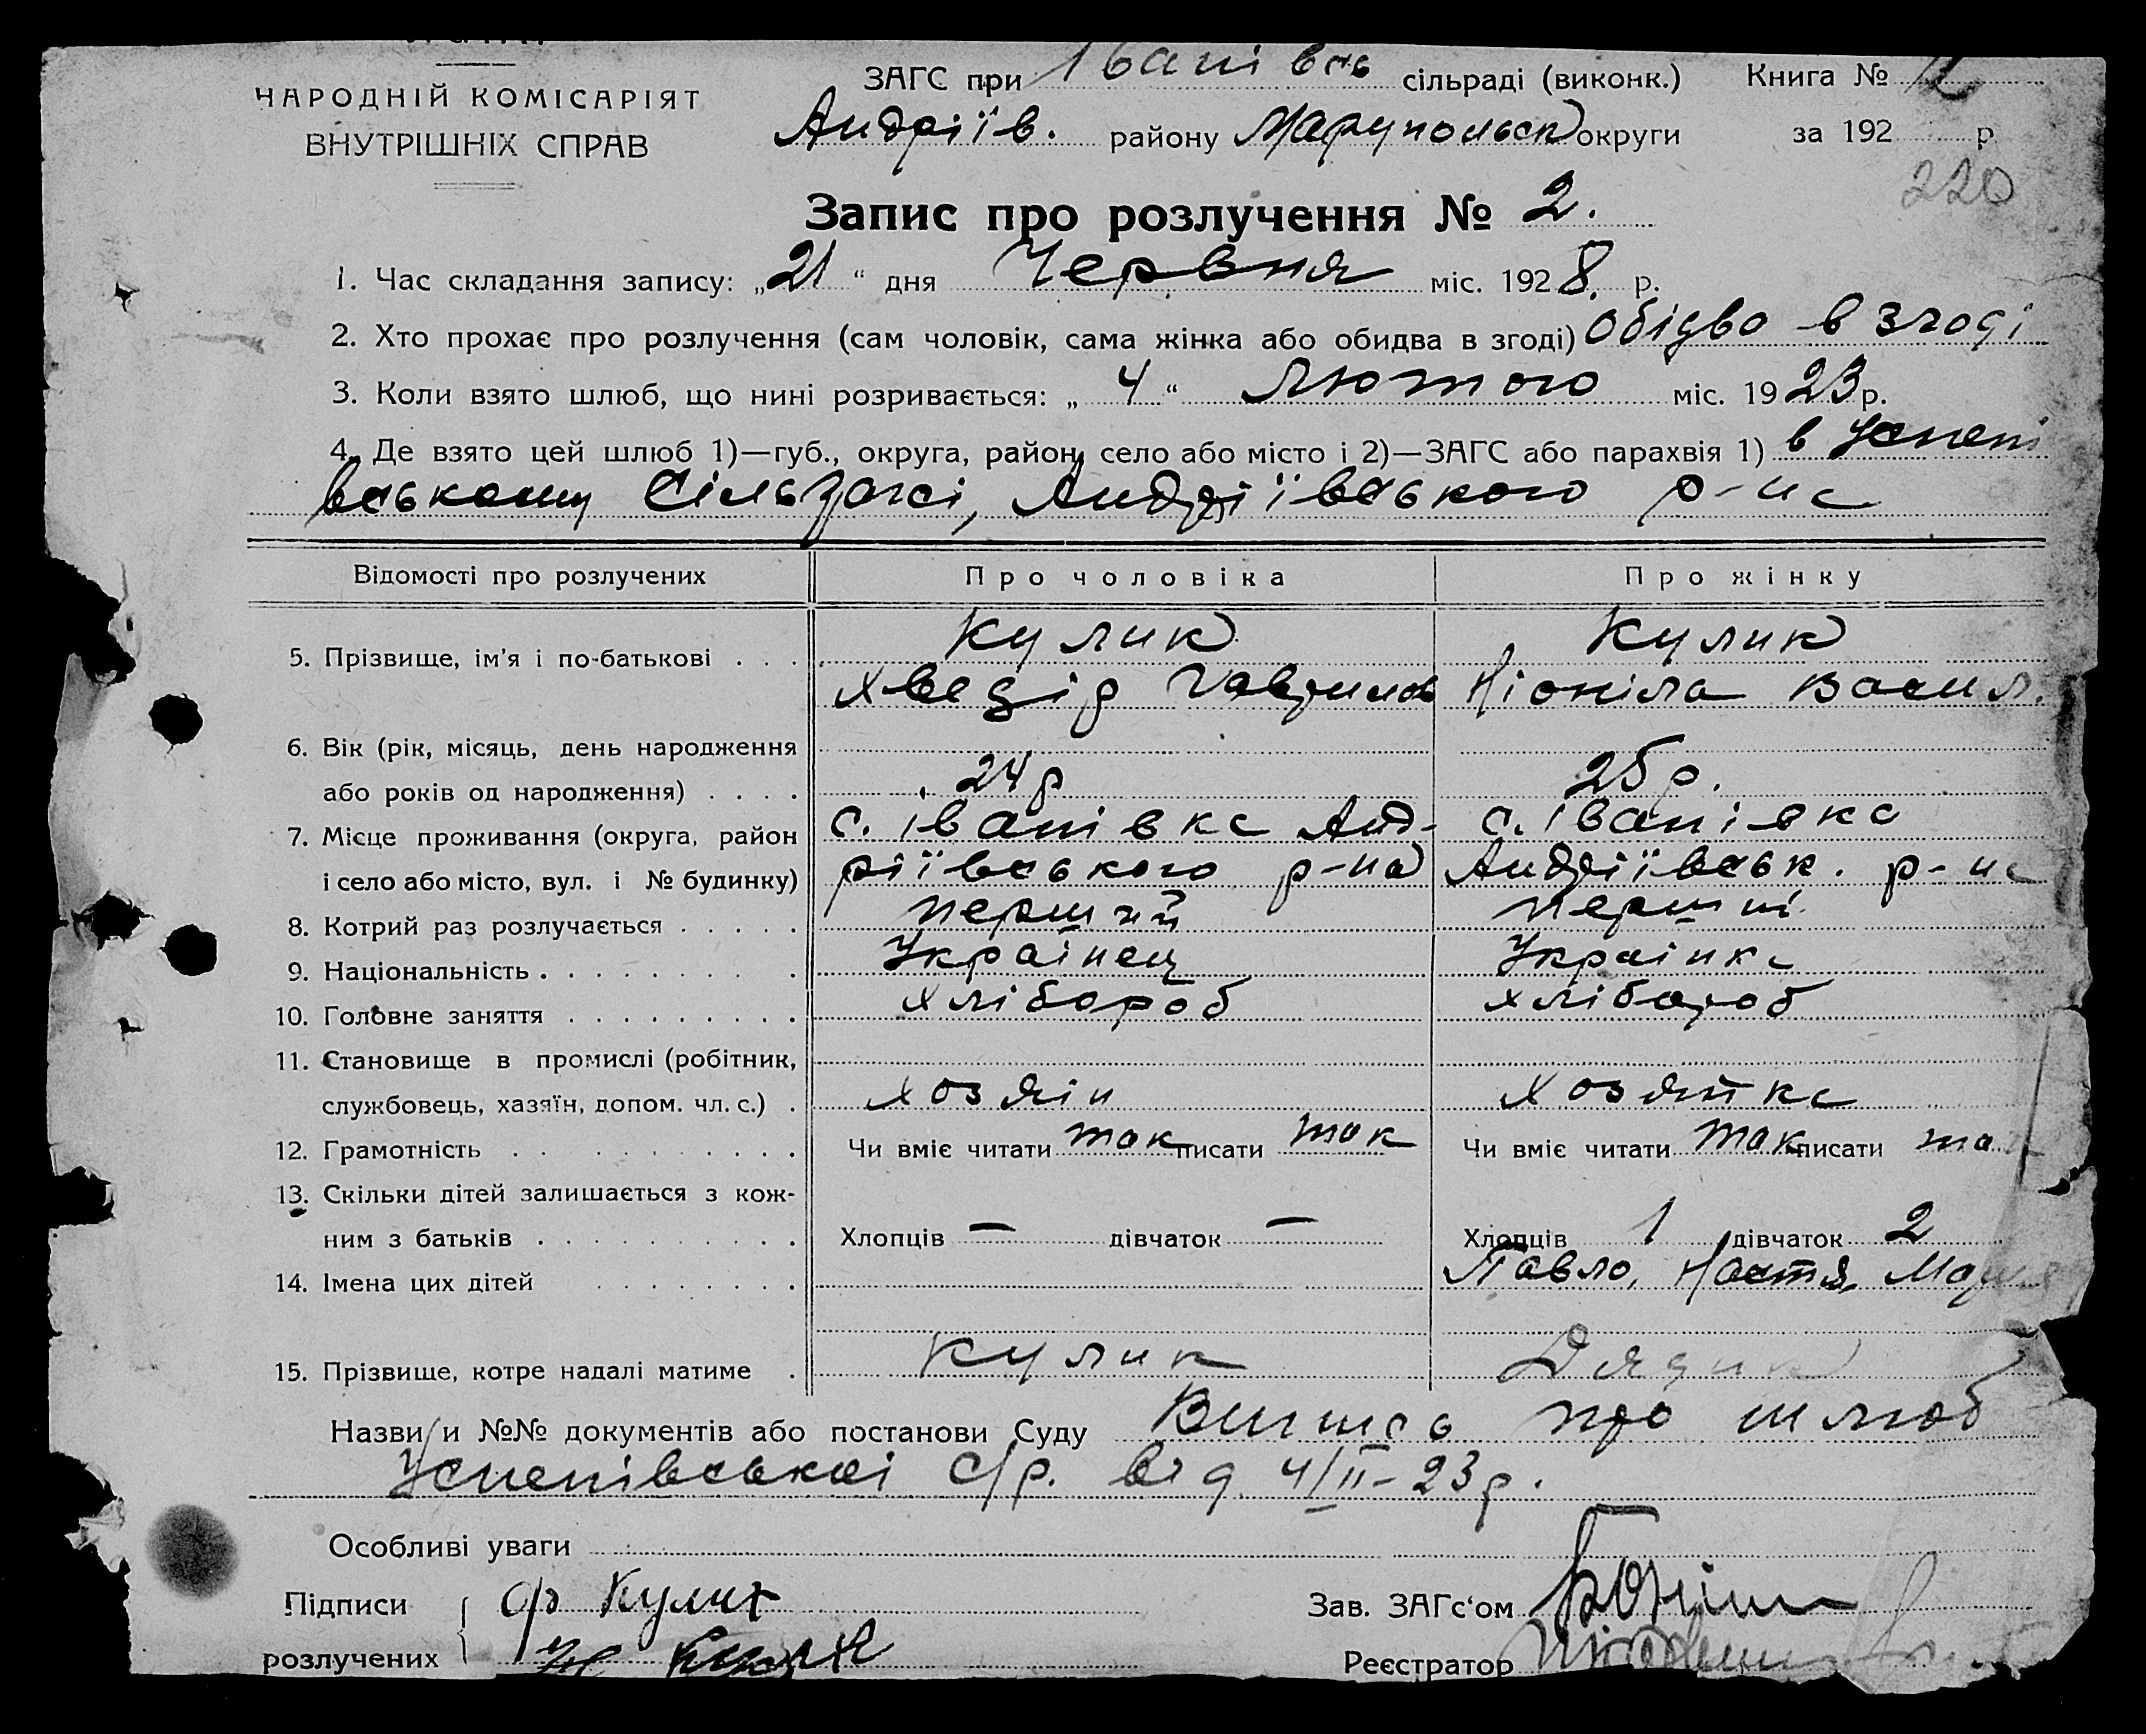 НАРОДНІЙ КОМІСАРІЯТ
ВНУТРІШНІХ СПРАВ
ЗАГС при Іванівсь сільраді (виконк.) Книга №
Андріїв. району Марупольськ округи за 192 р
220
Запис про розлучення № 2.
1. Час складання запису: „21“ дня Червня міс. 1928. р.
2. Хто прохає про розлучення (сам чоловік, сама жінка або обидва в згоді) Обідво в згоді
3. Коли взято шлюб, що нині розривається: „4“ Лютого міс. 1923 р.
4. Де взято цей шлюб 1)—губ., округа, район, село або місто і 2)—ЗАГС або парахвія 1) в Успені
вському Сільзагсі, Андріївського р-на
Відомості про розлучених Про чоловіка Про жінку
5. Прізвище, ім’я і по-батькові . . . Кулик Кулик
Хведір Гаврилов Ніоніла Васил.
6. Вік (рік, місяць, день народження
або років од народження) . . . . 24 р 25 р.
7. Місце проживання (округа, район с. Іванівка Анд- с. Іванівка
і село або місто, вул. і № будинку) ріївського р-на Андріївськ. р-на
8. Котрий раз розлучається . . . . . перший перший
9. Національність . . . . . . . . Українец Українка
10. Головне заняття . . . . . . . . . хлібороб хлібороб
11. Становище в промислі (робітник,
службовець, хазяїн, допом. чл. с.) . хозяін хозяйка
12. Грамотність . . . . . . . . . . Чи вміє читати так писати так Чи вміє читати так писати та
13. Скільки дітей залишається з кож-
ним з батьків . . . . . . . . . . Хлопців — дівчаток — Хлопців 1 дівчаток 2
14. Імена цих дітей . . . . . . . Павло, Настя,
15. Прізвище, котре надалі матиме . Кулик Дядик
Назви и №№ документів або постанови Суду Випись про шлюб
Успенівської с/р. від 4/II-23 р.
Особливі уваги
Підписи ф Кулик Зав. ЗАГс‘ом
розлучених Реєстратор